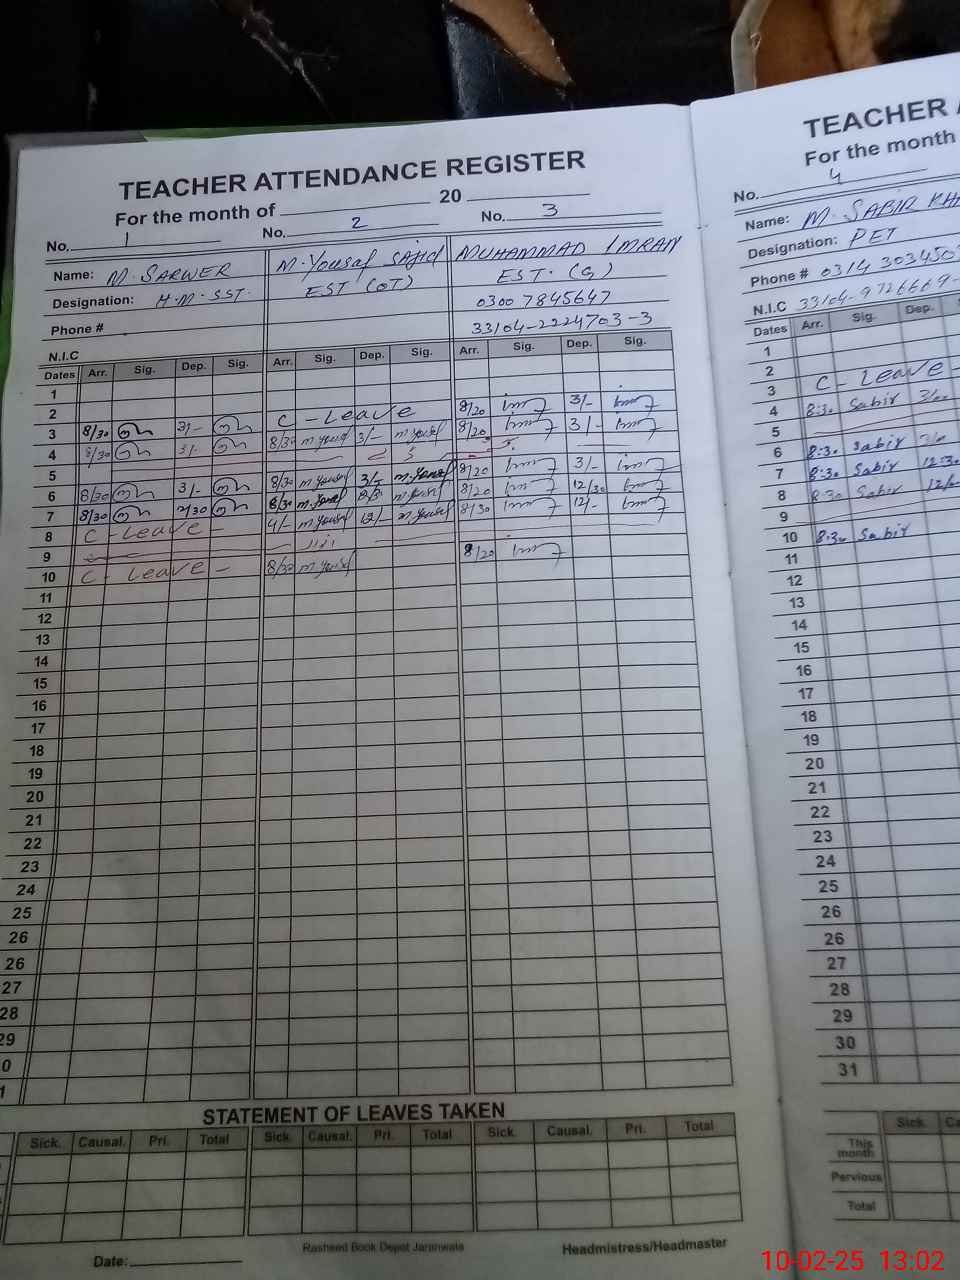 TEACHER ATTENDANCE REGISTER
For the month of 20
No. 1 No. 2 No. 3
Name: M. SARWER M. Yousaf Sajid MUHAMMAD IMRAN
Designation: H.M. SST. EST (OT) EST. (G)
Phone # 0300 7845647
N.I.C 33104-2224703-3
Dates Arr. Sig. Dep. Sig. Arr. Sig. Dep. Sig. Arr. Sig. Dep. Sig.
1
2
3 8/30 3/- C - Leave 8/20 3/-
4 8/30 3/- 8/30 m yousf 3/- m yousf 8/20 3/-
5
6 8/30 3/- 8/30 m yousf 3/- m. yousf 8/20 3/-
7 8/30 8/30 m. yousf m yousf 8/20 12/30
8 C - Leave - m yousf 12/- m. yousf 8/30 12/-
9
10 C - Leave - 8/30 m yousf 8/20
11
12
13
14
15
16
17
18
19
20
21
22
23
24
25
26
26
27
28
29
0
1
STATEMENT OF LEAVES TAKEN
Sick. Causal. Pri. Total Sick. Causal. Pri. Total Sick. Causal. Pri. Total
Date: Rasheed Book Depot Jaranwala Headmistress/Headmaster
TEACHER
For the month
No. 4
Name: M. SABIR KH
Designation: PET
Phone # 0314 303450
N.I.C 33104-9726669-
Dates Arr. Sig. Dep.
1
2
3 C - Leave -
4 8:30 Sabir 3/00
5
6 8:30 Sabir
7 8:30 Sabir 12:30
8 8:30 Sabir
9
10 8:30 Sabir
11
12
13
14
15
16
17
18
19
20
21
22
23
24
25
26
26
27
28
29
30
31
Sick. Ca
This month
Pervious
Total
10-02-25 13:02